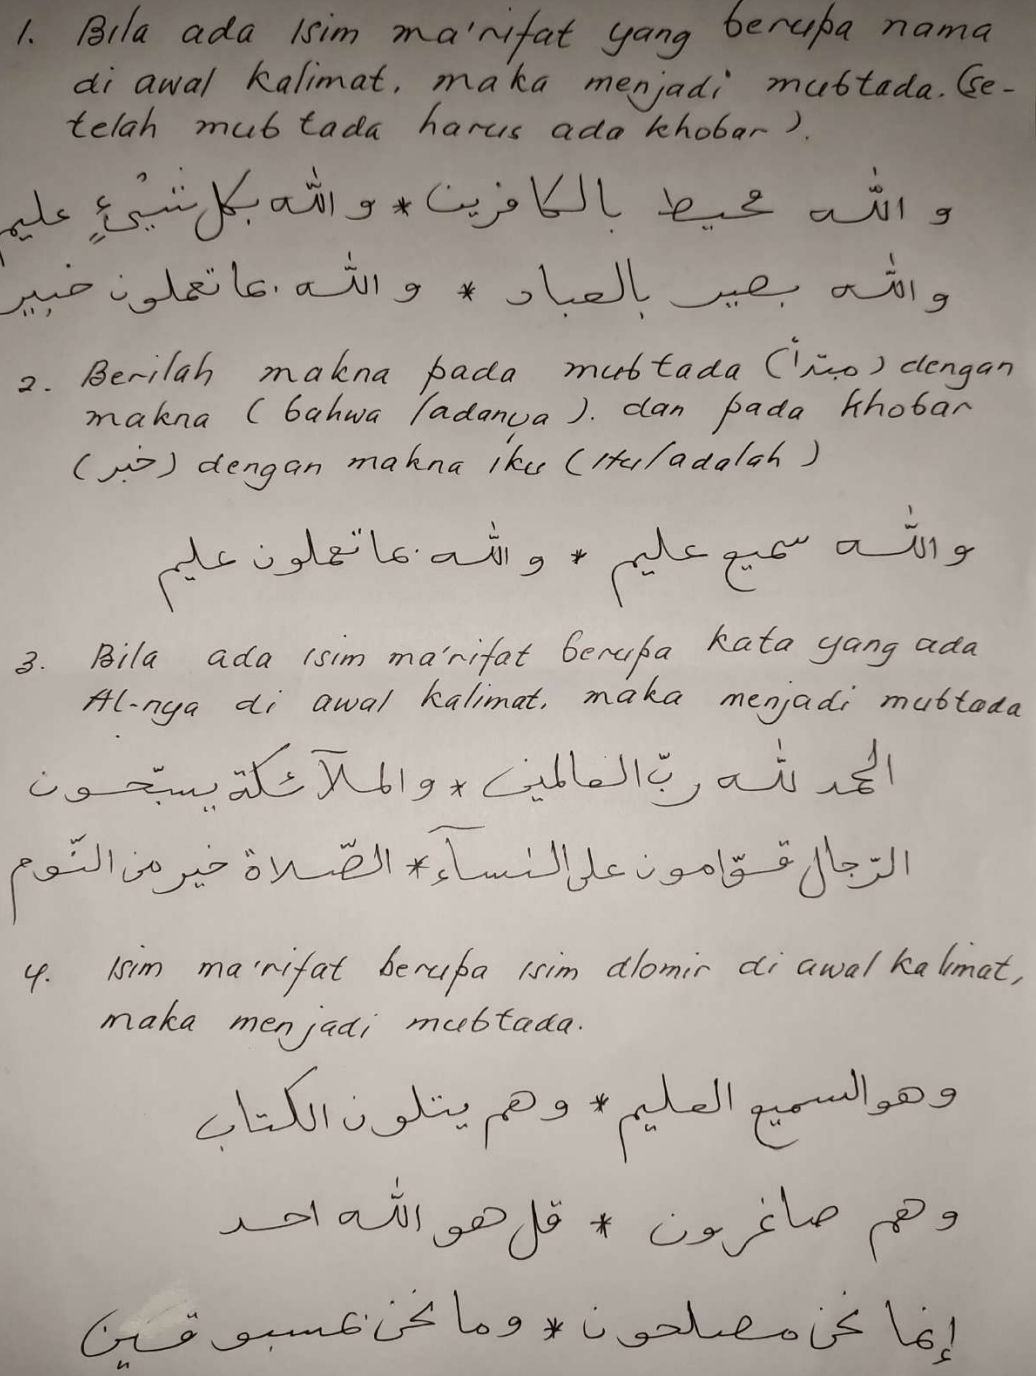 1. Bila ada isim ma'rifat yang berupa nama
di awal kalimat, maka menjadi mubtada. (se-
telah mubtada harus ada khobar).
و اللّٰه محيط بالكافرين * و اللّٰه بكل شيْءٍ عليم
واللّٰه بصير بالعباد * و اللّٰه بما تعملون خبير
2. Berilah makna pada mubtada (مبتدأ) dengan
makna (bahwa/adanya). dan pada khobar
(خبر) dengan makna iku (itu/adalah)
و اللّٰه سميع عليم * و اللّٰه بما تعملون عليم
3. Bila ada isim ma'rifat berupa kata yang ada
Al-nya di awal kalimat, maka menjadi mubtada
الحمد للّٰه ربّ العالمين * والملآئكة يسبّحون
الرّجال قوّامون على النسآء * الصّلاة خير من النّوم
4. Isim ma'rifat berupa isim dlomir di awal kalimat,
maka menjadi mubtada.
وهو السميع العليم * وهم يتلون الكتاب
وهم صاغرون * قل هو اللّٰه احد
إنما نحن مصلحون * وما نحن بمسبوقين